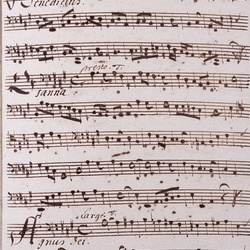 Benedictus.
presto. T.
sanna
Largo. T.
Agnus Dei.